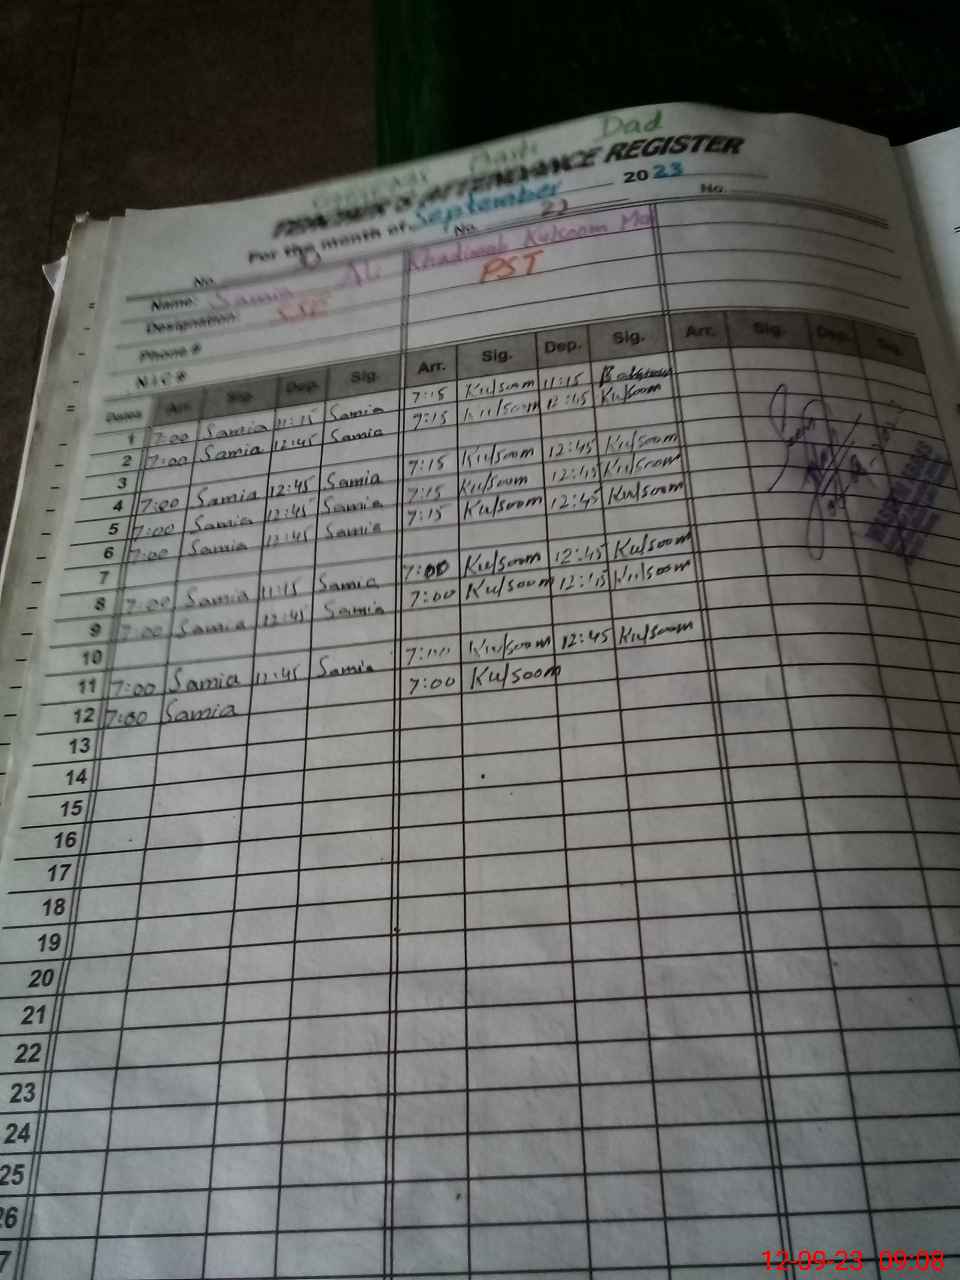 Dad
ATTENDANCE REGISTER
For the month of September 2023
No. No. 22 No.
Name: Samia
Designation: PST
Phone #
N I C #
Dates Arr. Sig. Dep. Sig. Arr. Sig. Dep. Sig. Arr. Sig. Dep. Sig.
1 7:00 Samia 11:15 Samia 7:15 Kulsoom 11:15
2 7:00 Samia 12:45 Samia 7:15 Kulsoom 12:45 Kulsoom
3
4 7:00 Samia 12:45 Samia 7:15 Kulsoom 12:45 Kulsoom
5 7:00 Samia 12:45 Samia 7:15 Kulsoom 12:45 Kulsoom
6 7:00 Samia 12:45 Samia 7:15 Kulsoom 12:45 Kulsoom
7
8 7:00 Samia 11:15 Samia 7:00 Kulsoom 12:45 Kulsoom
9 7:00 Samia 12:45 Samia 7:00 Kulsoom 12:15 Kulsoom
10
11 7:00 Samia 12:45 Samia 7:00 Kulsoom 12:45 Kulsoom
12 7:00 Samia 7:00 Kulsoom
13
14
15
16
17
18
19
20
21
22
23
24
25
26
7
12-09-23 09:08